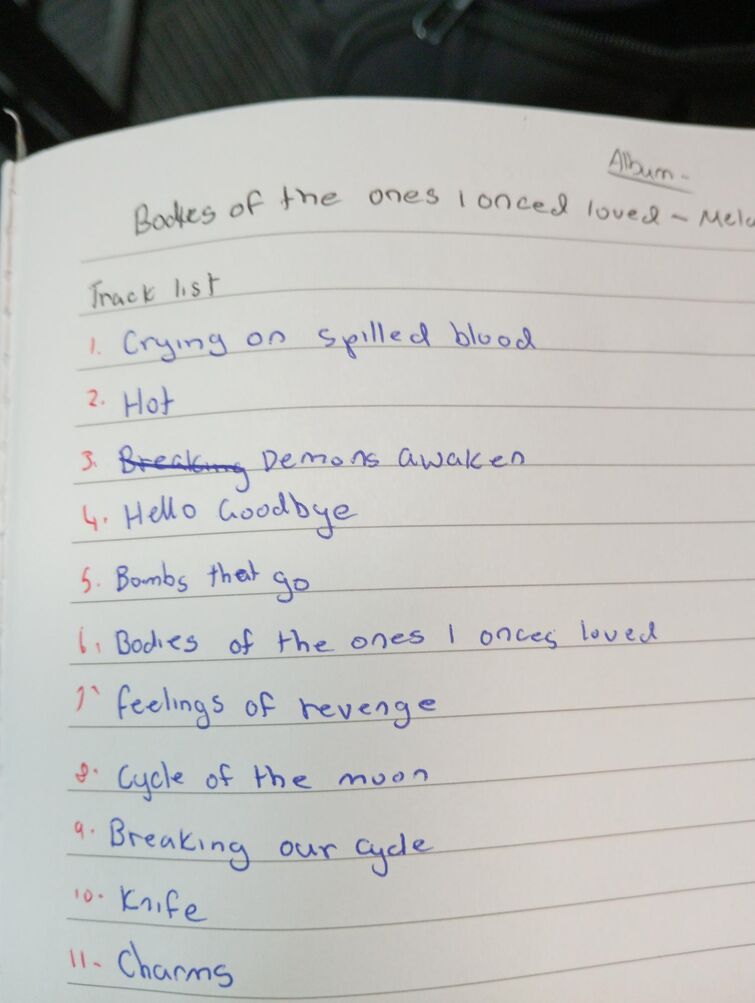 Album -
Bodies of the ones I onced loved - Mela
Track list
1. Crying on spilled blood
2. Hot
3. Breaking Demons awaken
4. Hello Goodbye
5. Bombs that go
6. Bodies of the ones I onces loved
7. feelings of revenge
8. Cycle of the moon
9. Breaking our cycle
10. Knife
11- Charms